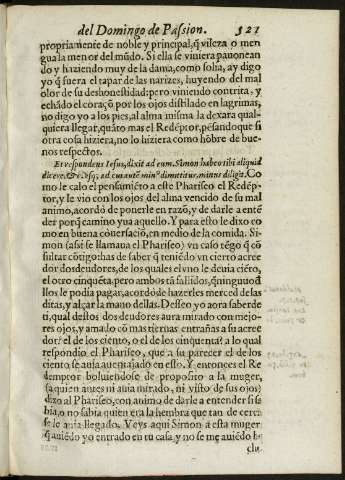 del Domingo de Passion. 521
propriamente de noble y principal, q̃ vileza o men
gua la menor del mũdo. Si ella se viniera pauonean
do y haziendo muy de la dama, como solia, ay digo
yo q̃ fuera el tapar de las narizes, huyendo del mal
olor de su deshonestidad: pero viniendo contrita, y
echãdo el coraçõ por los ojos distilado en lagrimas,
no digo yo a los pies, al alma misma la dexara qual-
quiera llegar, quãto mas el Redẽptor, pesandoque si
otra cosa hiziera, no lo hiziera como hõbre de bue-
nos respectos.
Et respondens Iesus, dixit ad eum. Simon habeo tibi aliquid
dicere, &c. Co
mo le calo el pensamiẽto a este Phariseo el Redẽp-
tor, y le vio con los ojos del alma vencido de su mal
animo, acordó de ponerle en razõ, y de darle a entẽ
der porq̃ camino yua aquello. Y para esto le dixo co
mo en buena cõuersaciõ, en medio de la comida. Si-
mon (assi se llamaua el Phariseo) vn caso tẽgo q̃ cõ
sultar cõtigo: has de saber q̃ teniẽdo vn cierto acree
dor dosdeudores, de los quales el vno le deuia ciẽto,
el otro cinquẽta, pero ambos tã fallidos, q̃ninguno d̃
llos le podia pagar, acordó de hazerles merced de las
ditas, y alçar la mano dellas. Desseo yo aora saber de
ti, qual destos dos deudores aura mirado con mejo-
res ojos, y amado cõ mas tiernas entrañas a su acree
dor? el de los ciento, o el de los cinquenta? a lo qual
respondio el Phariseo, que a su parecer el de los
ciento se auia auentajado en esso. Y entonces el Re
demptor boluiendose de proposito a la muger,
(a quien antes ni auia mirado, ni visto de sus ojos)
dixo al Phariseo, con animo de darle a entender si sa
bia, o no sabia quien era la hembra que tan de cerca
se le auia llegado. Veys aqui Simon a esta muger
q̃ auiẽdo yo entrado en tu casa, y no se me auiẽdo he
cho